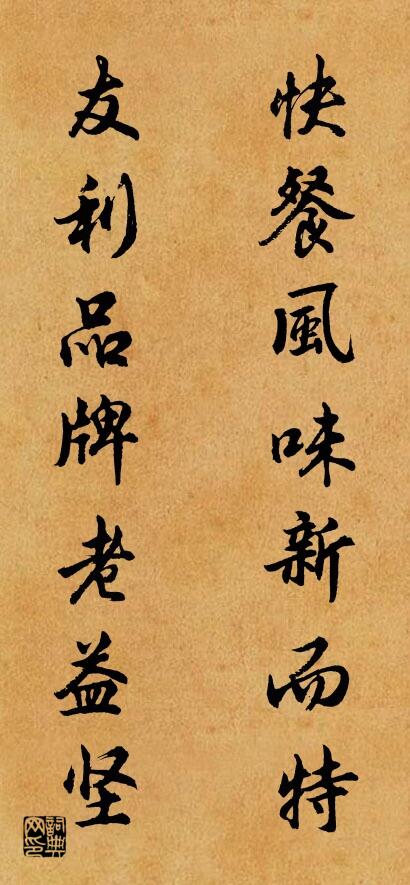 快餐風味新而特
友利品牌老益坚
詞典网印